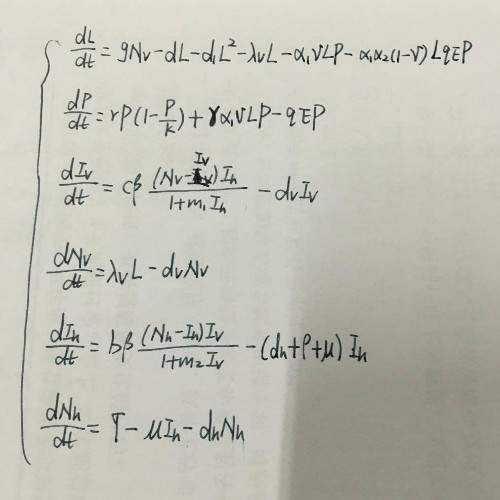 dL/dt = gNv - dL - d₁L² - λvL - α₁VLP - α₁α₂(1-V)LqEP
dP/dt = rP(1 - P/k) + γα₁VLP - qEP
dIv/dt = cβ (Nv - Iv)Ih / (1+m₁Ih) - dvIv
dNv/dt = λvL - dvNv
dIh/dt = bβ (Nh - Ih)Iv / (1+m₂Iv) - (dh+ρ+μ)Ih
dNh/dt = T - μIh - dhNh